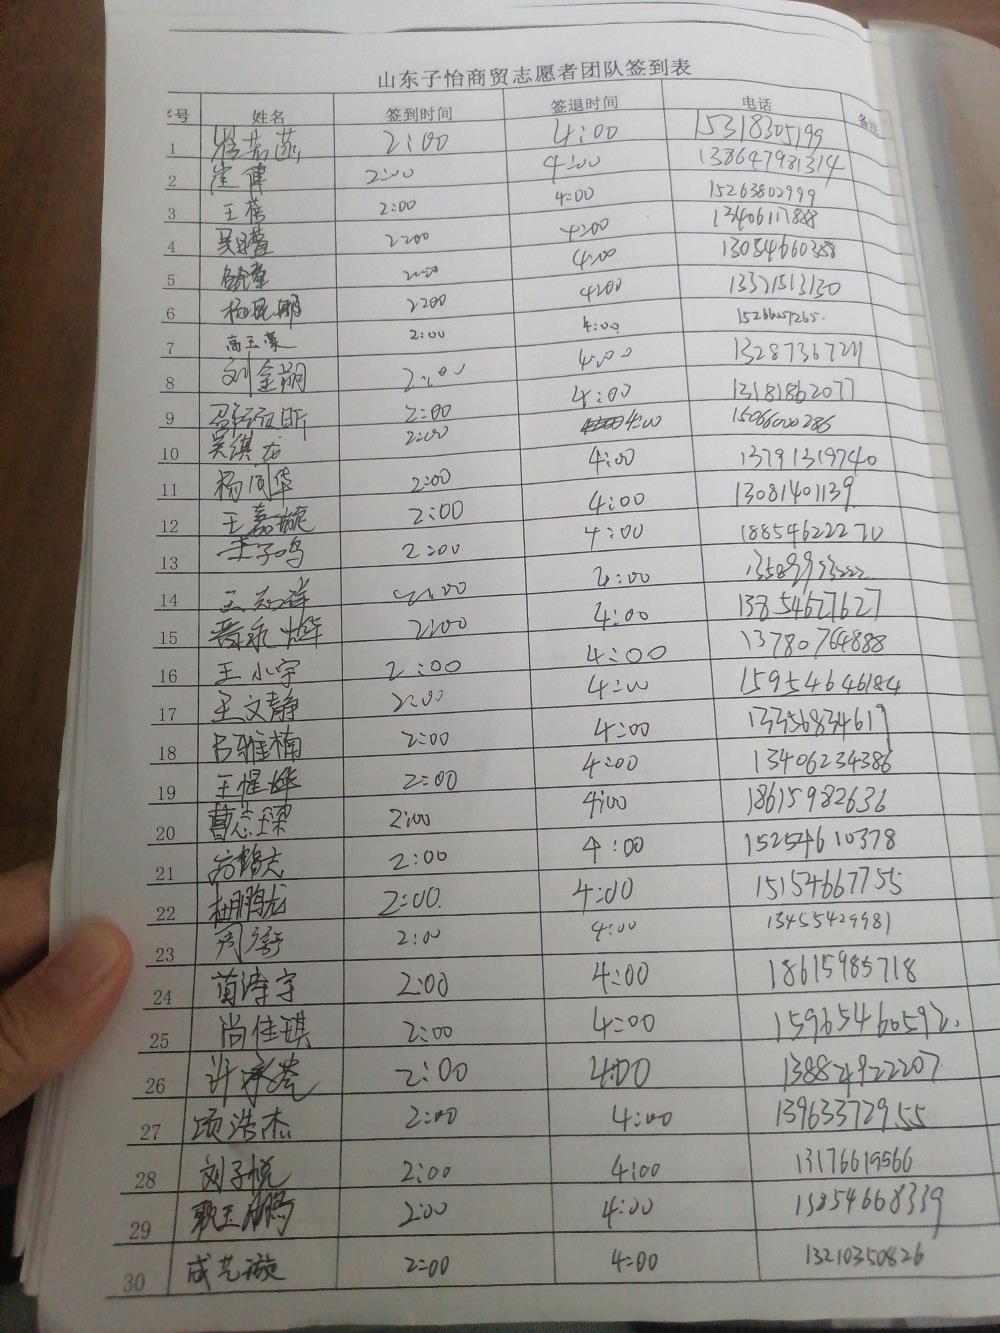 山东子怡商贸志愿者团队签到表
号 姓名 签到时间 签退时间 电话 备注
1 2:00 4:00 15318305199
2 崔健 2:00 4:00 138647981314
3 王蓓 2:00 4:00 15263802999
4 2:00 4:00 13406117888
5 2:00 4:00 13084660388
6 杨昆鹏 2:00 4:00 13371513130
7 高玉豪 2:00 4:00
8 刘金嗣 2:00 4:00 13287367211
9 2:00 4:00 13181862077
10 吴淇龙 2:00 4:00 15066000286
11 杨同华 2:00 4:00 13791319740
12 王嘉璇 2:00 4:00 13081401139
13 王子鸣 2:00 4:00 18854622270
14 2:00 4:00
15 2:00 4:00 13854627627
16 王小宇 2:00 4:00 13780764888
17 王文静 2:00 4:00 15954646184
18 吕雅楠 2:00 4:00 13356834619
19 王惺烨 2:00 4:00 13406234386
20 2:00 4:00 18615982636
21 2:00 4:00 15254610378
22 杜鹏龙 2:00 4:00 15154667755
23 2:00 4:00 13455429981
24 2:00 4:00 18615985718
25 尚佳琪 2:00 4:00 15965460592.
26 2:00 4:00 13884922207
27 项浩杰 2:00 4:00 13963372955
28 刘子悦 2:00 4:00 13176619566
29 耿玉鹏 2:00 4:00 15854668339
30 成艺璇 2:00 4:00 13210350826